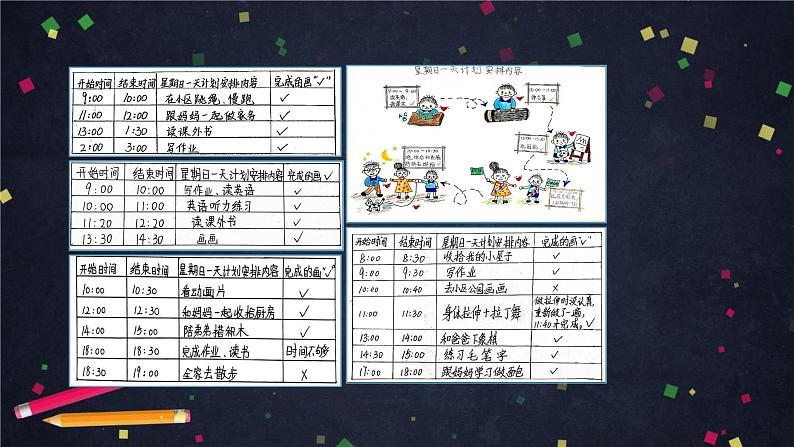 开始时间 结束时间 星期日一天计划安排内容 完成的画“✓”
9:00 10:00 在小区跳绳、慢跑 ✓
11:00 12:00 跟妈妈一起做家务 ✓
13:00 1:30 读课外书 ✓
2:00 3:00 写作业 ✓
开始时间 结束时间 星期日一天计划安排内容 完成的画“✓”
9:00 10:00 写作业、读英语 ✓
10:00 11:00 英语听力练习 ✓
11:20 12:20 读课外书 ✓
13:30 14:30 画画 ✓
开始日时间 结束时间 星期日一天计划安排内容 完成的画“✓”
10:00 10:30 看动画片 ✓
12:00 12:30 和妈妈一起收拾厨房 ✓
14:00 15:00 陪弟弟搭积木 ✓
18:00 18:30 完成作业、读书 时间不够
18:30 19:00 全家去散步 ×
星期日一天计划安排内容
9:00-9:30
10:00-11:00
弹古筝
开始时间 结束时间 星期日一天计划安排内容 完成的画“✓”
8:00 8:30 收拾我的小屋子 ✓
9:00 9:30 写作业 ✓
10:00 10:40 去小区公园画画 ×
11:00 11:30 身体拉伸+拉丁舞 做拉伸时没认真,重新做了一遍,11:40才完成。✓
13:00 14:00 和爸爸下象棋 ✓
14:30 15:00 练习毛笔字 ✓
17:00 18:00 跟妈妈学习做面包 ✓